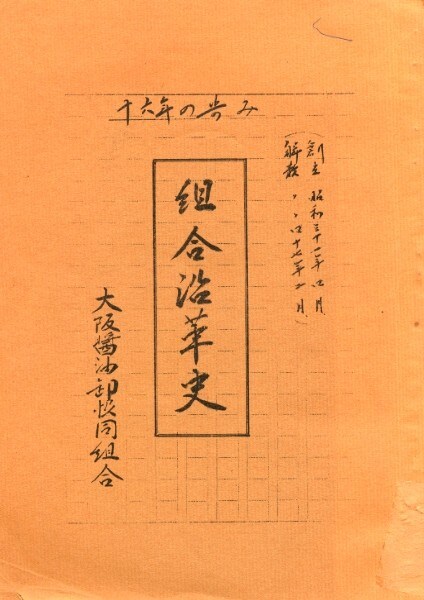 十六年の歩み
創立 昭和三十一年四月
解散 〃 〃 四十七年 月
組合沿革史
大阪醤油卸協同組合